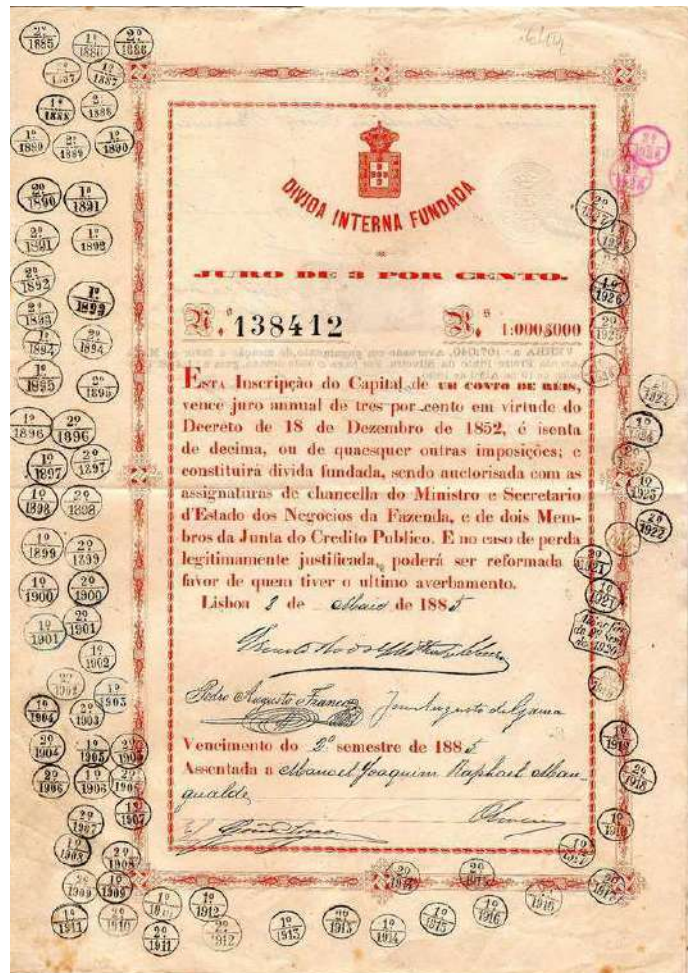 DIVIDA INTERNA FUNDADA
JURO DE 3 POR CENTO.
N.º 138412 R.s 1:000$000
ESTA Inscripção do Capital de UM CONTO DE REIS,
vence juro annual de tres por cento em virtude do
Decreto de 18 de Dezembro de 1852, é isenta
de decima, ou de quaesquer outras imposições; e
constituirá divida fundada, sendo auctorisada com as
assignaturas de chancella do Ministro e Secretario
d'Estado dos Negocios da Fazenda, e de dois Mem-
bros da Junta do Credito Publico. E no caso de perda
legitimamente justificada, poderá ser reformada a
favor de quem tiver o ultimo averbamento.
Lisboa de Maio de 1885
Pedro Augusto Franco José Augusto da Gama
Vencimento do 2º semestre de 1885
Assentada a Manoel Joaquim Raphael Man-
gualde
2º 1885
1º 1886
2º 1886
1º 1887
1º 1888
2º 1888
1º 1889
2º 1889
1º 1890
2º 1890
1º 1891
2º 1891
1º 1892
2º 1892
1º 1893
2º 1893
1º 1894
2º 1894
1º 1895
2º 1895
1º 1896
2º 1896
1º 1897
2º 1897
1º 1898
2º 1898
1º 1899
2º 1899
1º 1900
2º 1900
1º 1901
2º 1901
1º 1902
2º 1902
1º 1903
2º 1903
1º 1904
2º 1904
1º 1905
2º 1905
1º 1906
2º 1906
1º 1907
2º 1907
1º 1908
2º 1908
1º 1909
2º 1909
2º 1910
1º 1911
2º 1911
1º 1912
2º 1912
1º 1913
2º 1913
1º 1914
2º 1914
1º 1915
2º 1915
1º 1916
1º 1917
2º 1917
2º 1918
1º 1919
1º 1921
2º 1921
2º 1922
1º 1923
1º 1924
2º 1925
1º 1926